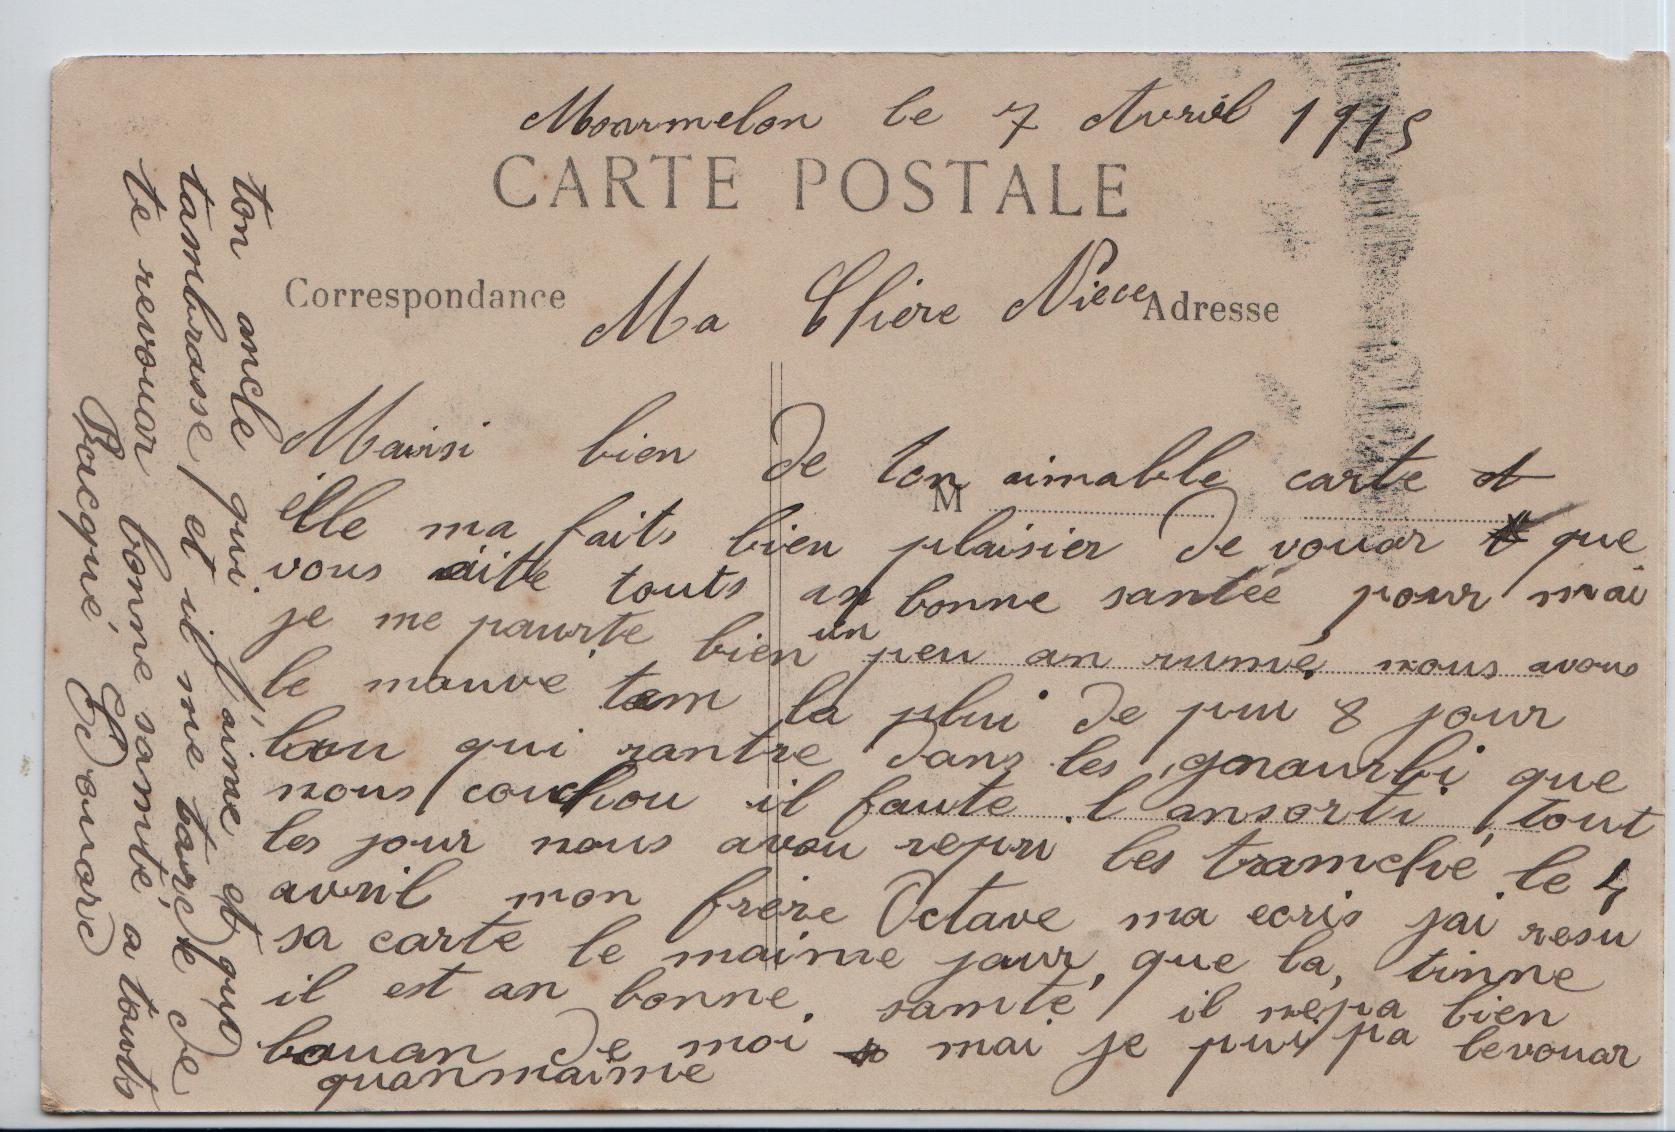 Mourmelon le 7 Avril 1915
CARTE POSTALE
Correspondance
Ma Chère Niece
Adresse
Mairsi bien de ton aimable carte et
M
elle ma faits bien plaisier de vouar que
vous aite touts an bonne santée pour moi
je me paurte bien un peu an rumé, nous avons
le mauvé tam la plui de pui 8 jour
lou qui rantre dans les gouaurbi que
nous couchou il faute l ansorti, tout
les jour nous avou repri les tramché, le 4
avril mon frère Octave ma ecris jai resu
sa carte le maime jour, que la, tinne
il est an bonne santé, il nepa bien
louan de moi mai je pui pa levouar
quanmaime
ton oncle qui t'aime et qui
tambrasse et il me tarde de
te revouar bonne santé, a touts
Racqué, Edouard